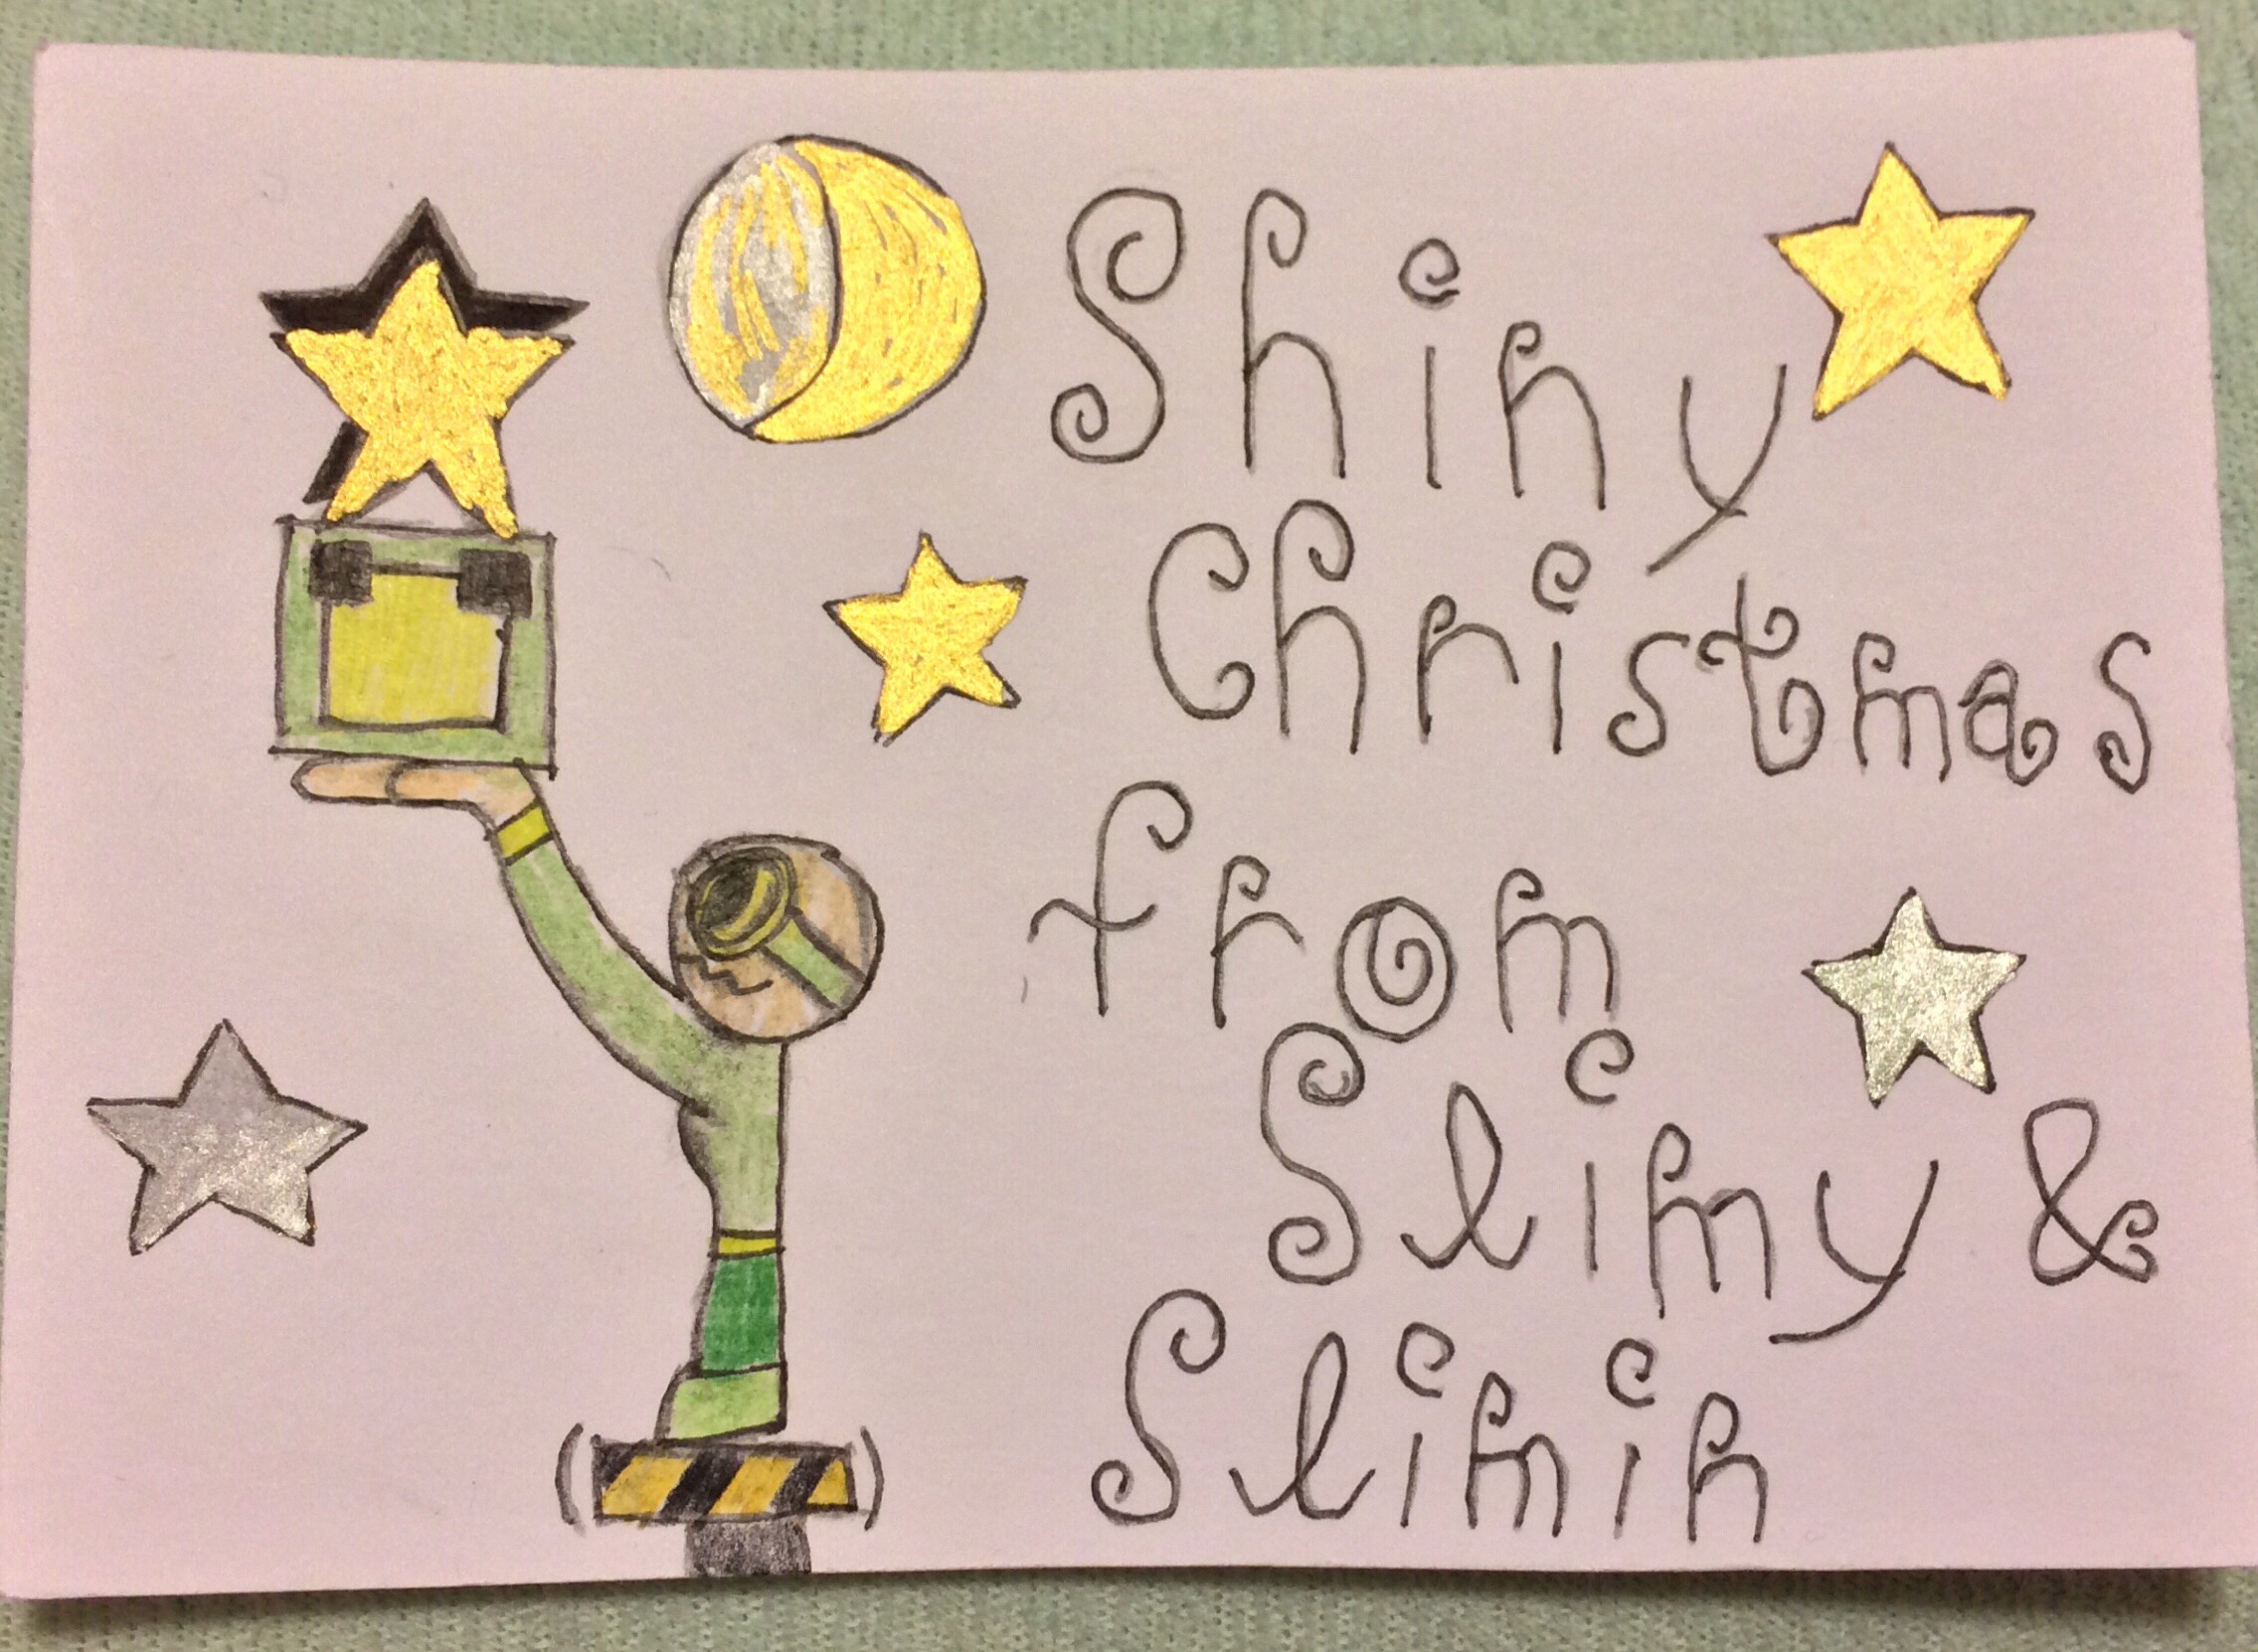 Shiny
Christmas
from
Slimy &
Slimin